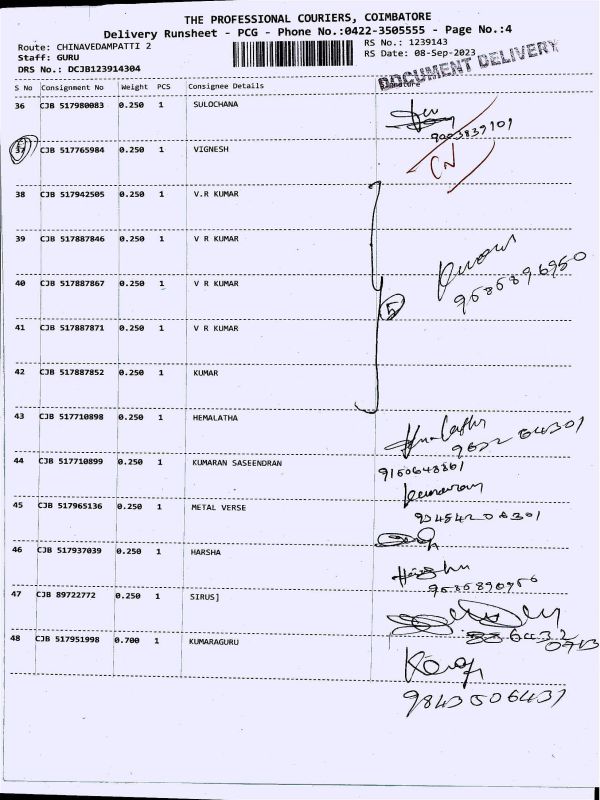 THE PROFESSIONAL COURIERS, COIMBATORE
Delivery Runsheet - PCG - Phone No.:0422-3505555 - Page No.:4
Route: CHINAVEDAMPATTI 2
RS No.: 1239143
Staff: GURU
RS Date: 08-Sep-2023
DRS No.: DCJB123914304
DOCUMENT DELIVERY
S No Consignment No Weight PCS Consignee Details
36 CJB 517980083 0.250 1 SULOCHANA
9003839101
37 CJB 517765984 0.250 1 VIGNESH
CN
38 CJB 517942505 0.250 1 V.R KUMAR
39 CJB 517887846 0.250 1 V R KUMAR
9585896950
40 CJB 517887867 0.250 1 V R KUMAR
5
41 CJB 517887871 0.250 1 V R KUMAR
42 CJB 517887852 0.250 1 KUMAR
43 CJB 517710898 0.250 1 HEMALATHA
44 CJB 517710899 0.250 1 KUMARAN SASEENDRAN
45 CJB 517965136 0.250 1 METAL VERSE
46 CJB 517937039 0.250 1 HARSHA
47 CJB 89722772 0.250 1 SIRUS]
48 CJB 517951998 0.700 1 KUMARAGURU
9843506431